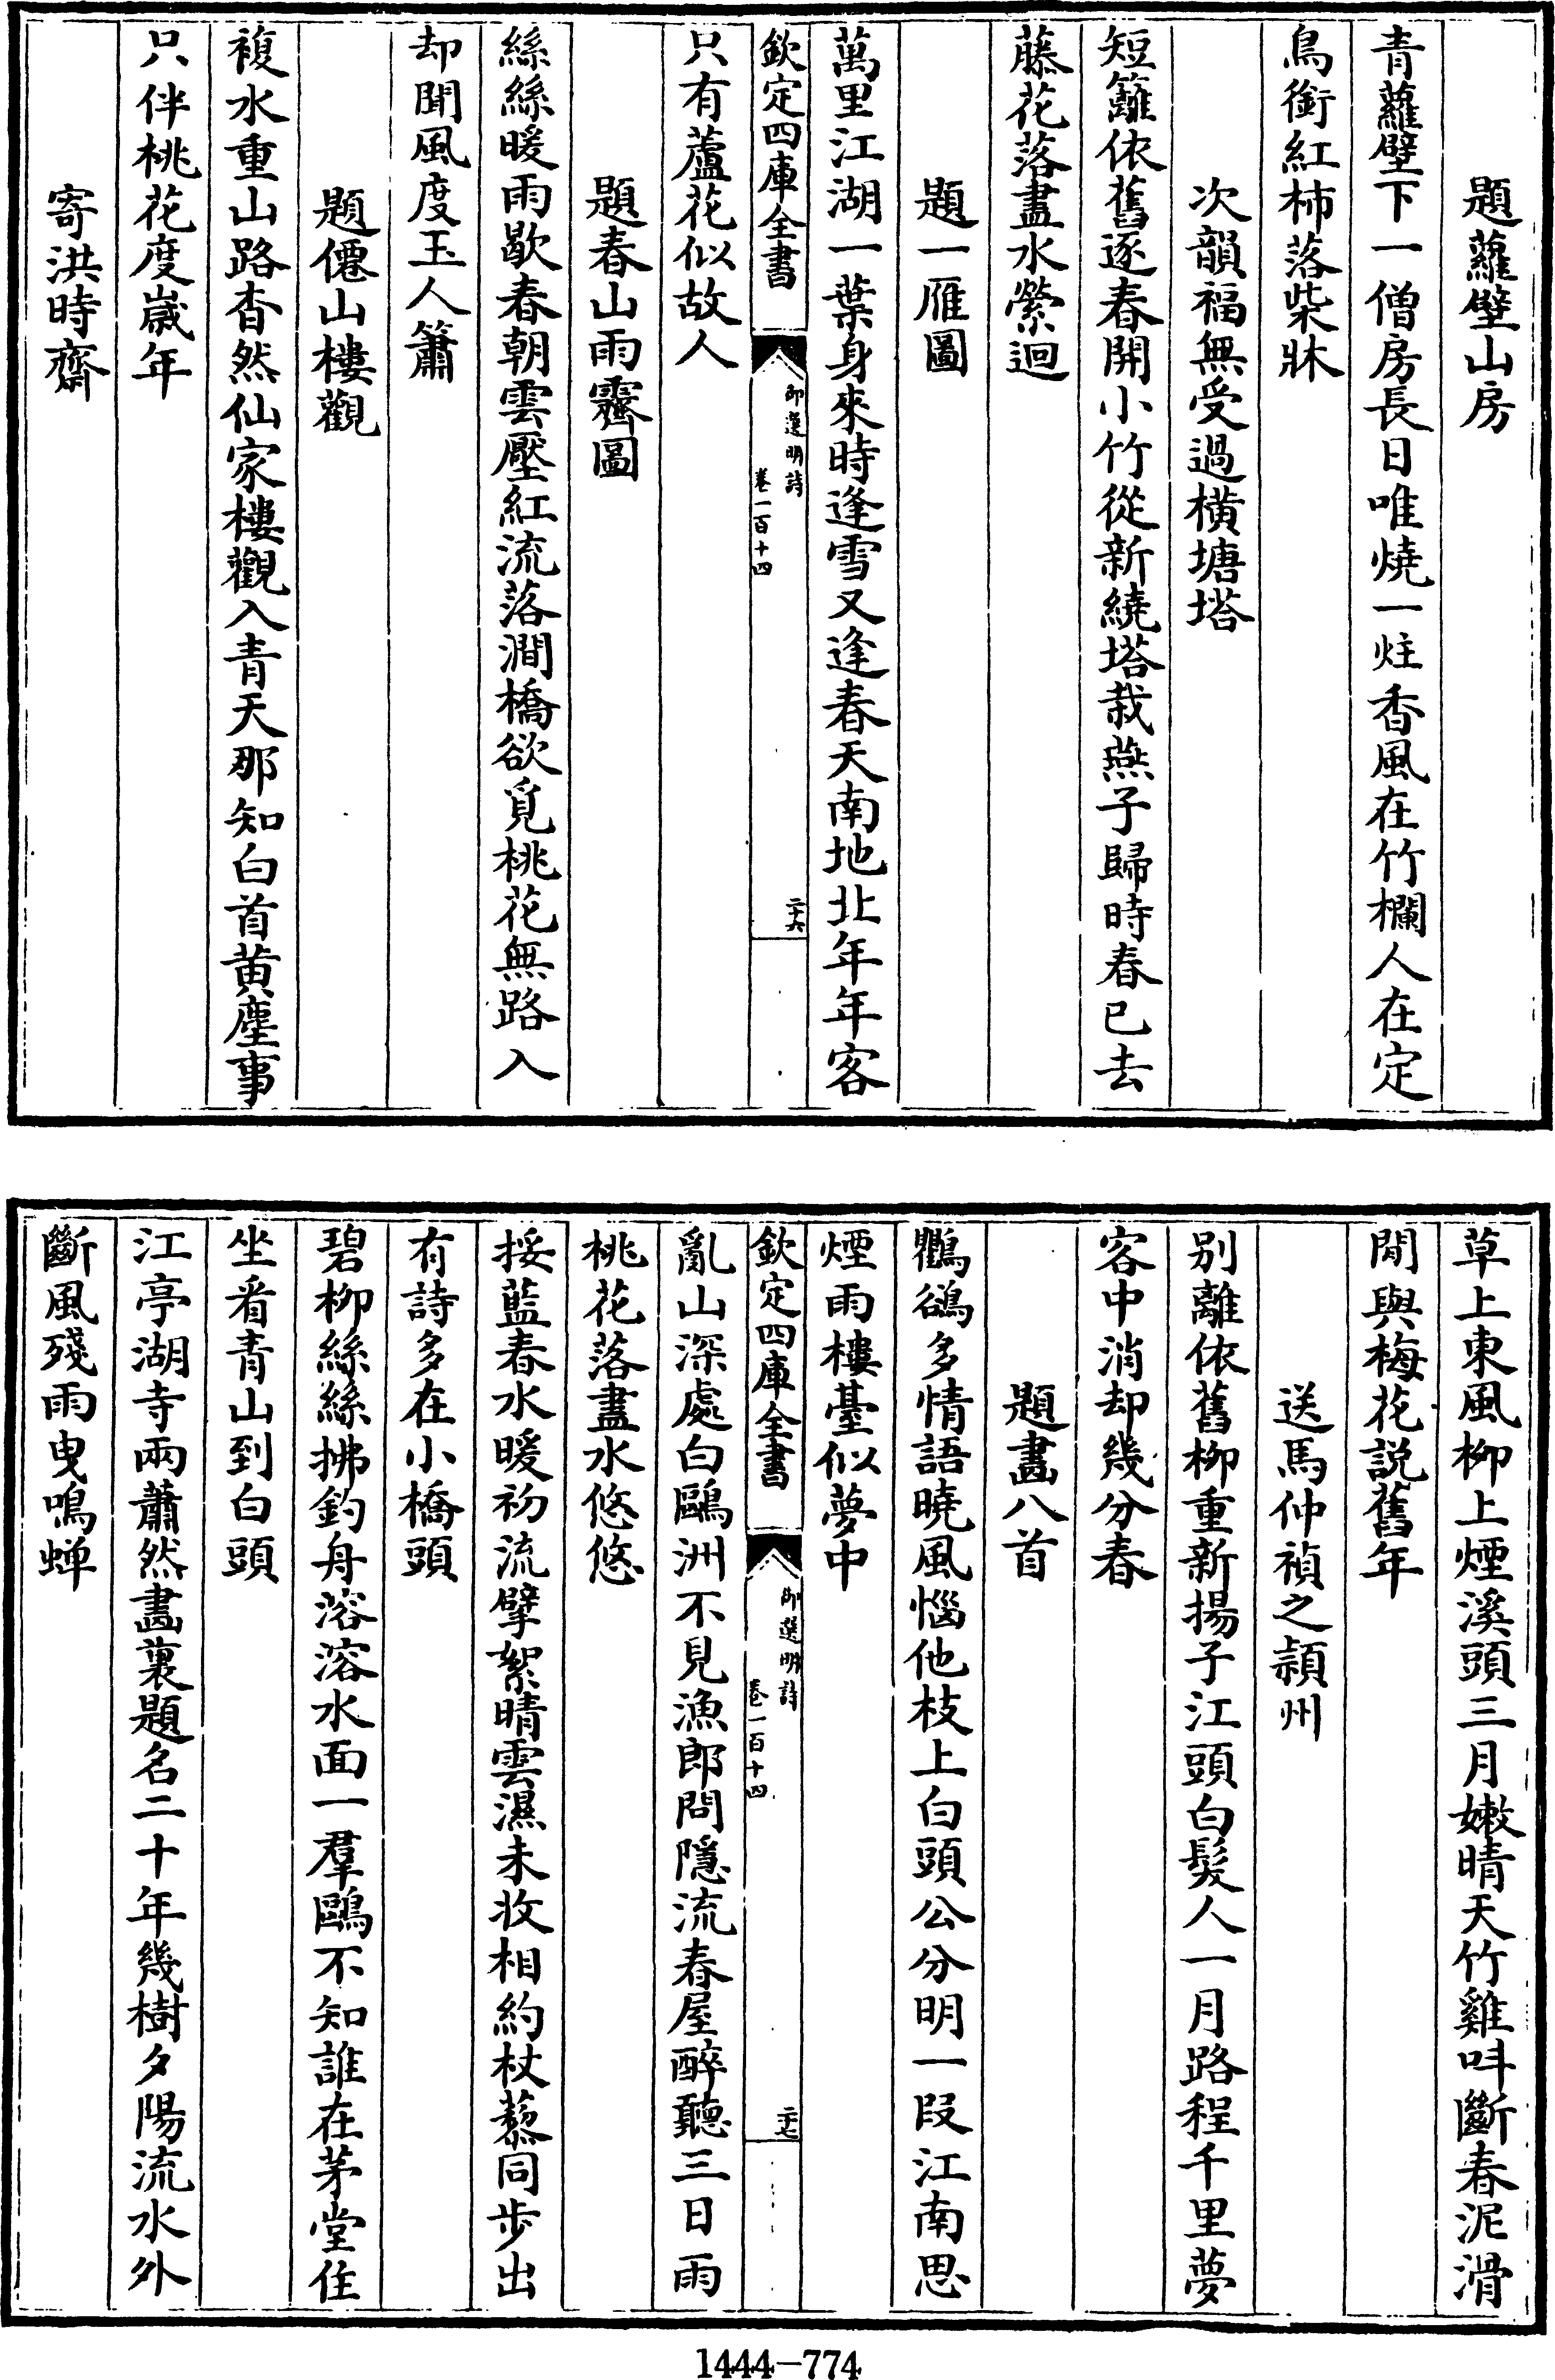 題蘿壁山房
青蘿壁下一僧房長日唯燒一炷香風在竹欄人在定
鳥銜紅柿落柴牀
次韻福無受過橫塘塔
短籬依舊逐春開小竹從新繞塔栽燕子歸時春已去
藤花落盡水縈迴
題一雁圖
萬里江湖一葉身來時逢雪又逢春天南地北年年客
欽定四庫全書
御選明詩
卷一百十四
二十六
只有蘆花似故人
題春山雨霽圖
絲絲暖雨歇春朝雲壓紅流落澗橋欲覓桃花無路入
却聞風度玉人簫
題僊山樓觀
複水重山路杳然仙家樓觀入青天那知白首黃塵事
只伴桃花度歲年
寄洪時齋
草上東風柳上煙溪頭三月嫩晴天竹雞呌斷春泥滑
閒與梅花說舊年
送馬仲禎之潁州
别離依舊柳重新揚子江頭白髮人一月路程千里夢
客中消却幾分春
題畫八首
鸜鵒多情語曉風惱他枝上白頭公分明一段江南思
煙雨樓臺似夢中
欽定四庫全書
御選明詩
卷一百十四
二十七
亂山深處白鷗洲不見漁郎問隱流春屋醉聽三日雨
桃花落盡水悠悠
挼藍春水暖初流擘絮晴雲濕未收相約杖藜同步出
有詩多在小橋頭
碧柳絲絲拂釣舟溶溶水面一羣鷗不知誰在茅堂住
坐看青山到白頭
江亭湖寺兩蕭然畫裏題名二十年幾樹夕陽流水外
斷風殘雨曳鳴蟬
1444-774